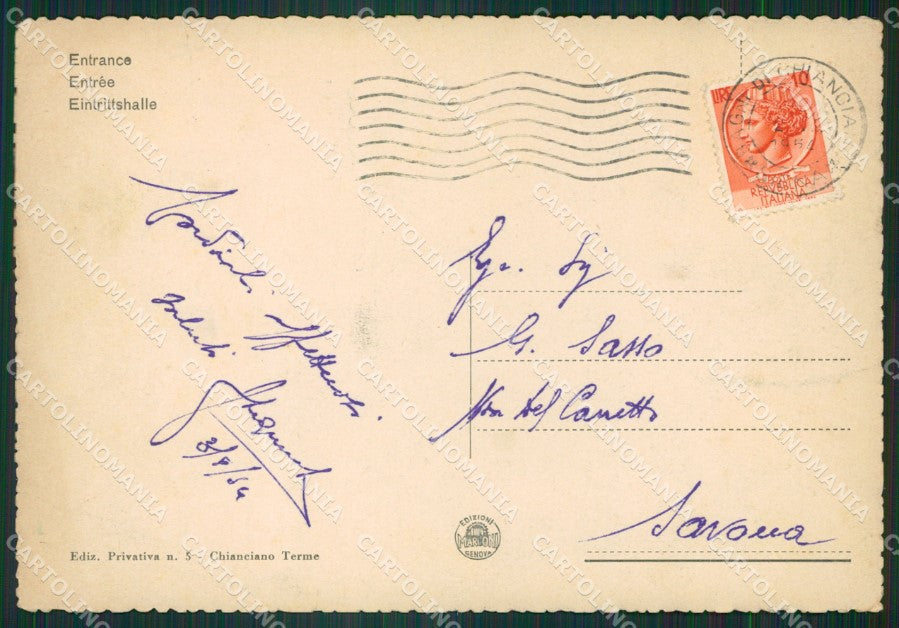 Entrance
Entrée
Eintrittshalle
LIRE 10
CHIANCIANO
1954
REPVBBLICA
ITALIANA
Cordiali
Affettuosi
saluti
3/9/54
Egr. Sig
G. Sasso
Via del Carretto
Savona
EDIZIONI
MARCONI
GENOVA
Ediz. Privativa n. 5 - Chianciano Terme
CARTOLINOMANIA